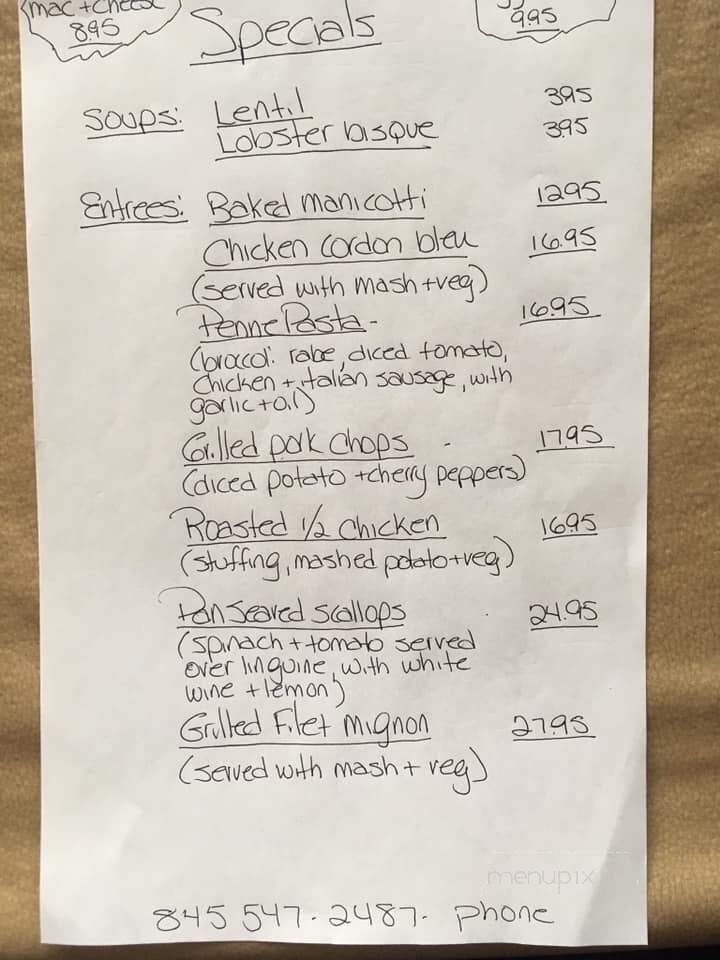 mac + cheese
8.95
9.95
Specials
Soups: Lentil 3.95
Lobster bisque 3.95
Entrees: Baked manicotti 12.95
Chicken cordon bleu 16.95
(served with mash + veg)
Penne Pasta - 16.95
(broccoli rabe, diced tomato,
chicken + italian sausage, with
garlic + oil)
Grilled pork chops - 17.95
(diced potato + cherry peppers)
Roasted 1/2 chicken 16.95
(stuffing, mashed potato + veg)
Pan Seared scallops 24.95
(spinach + tomato served
over linguine, with white
wine + lemon)
Grilled Filet mignon 27.95
(served with mash + veg)
menupix
845 547-2487- phone